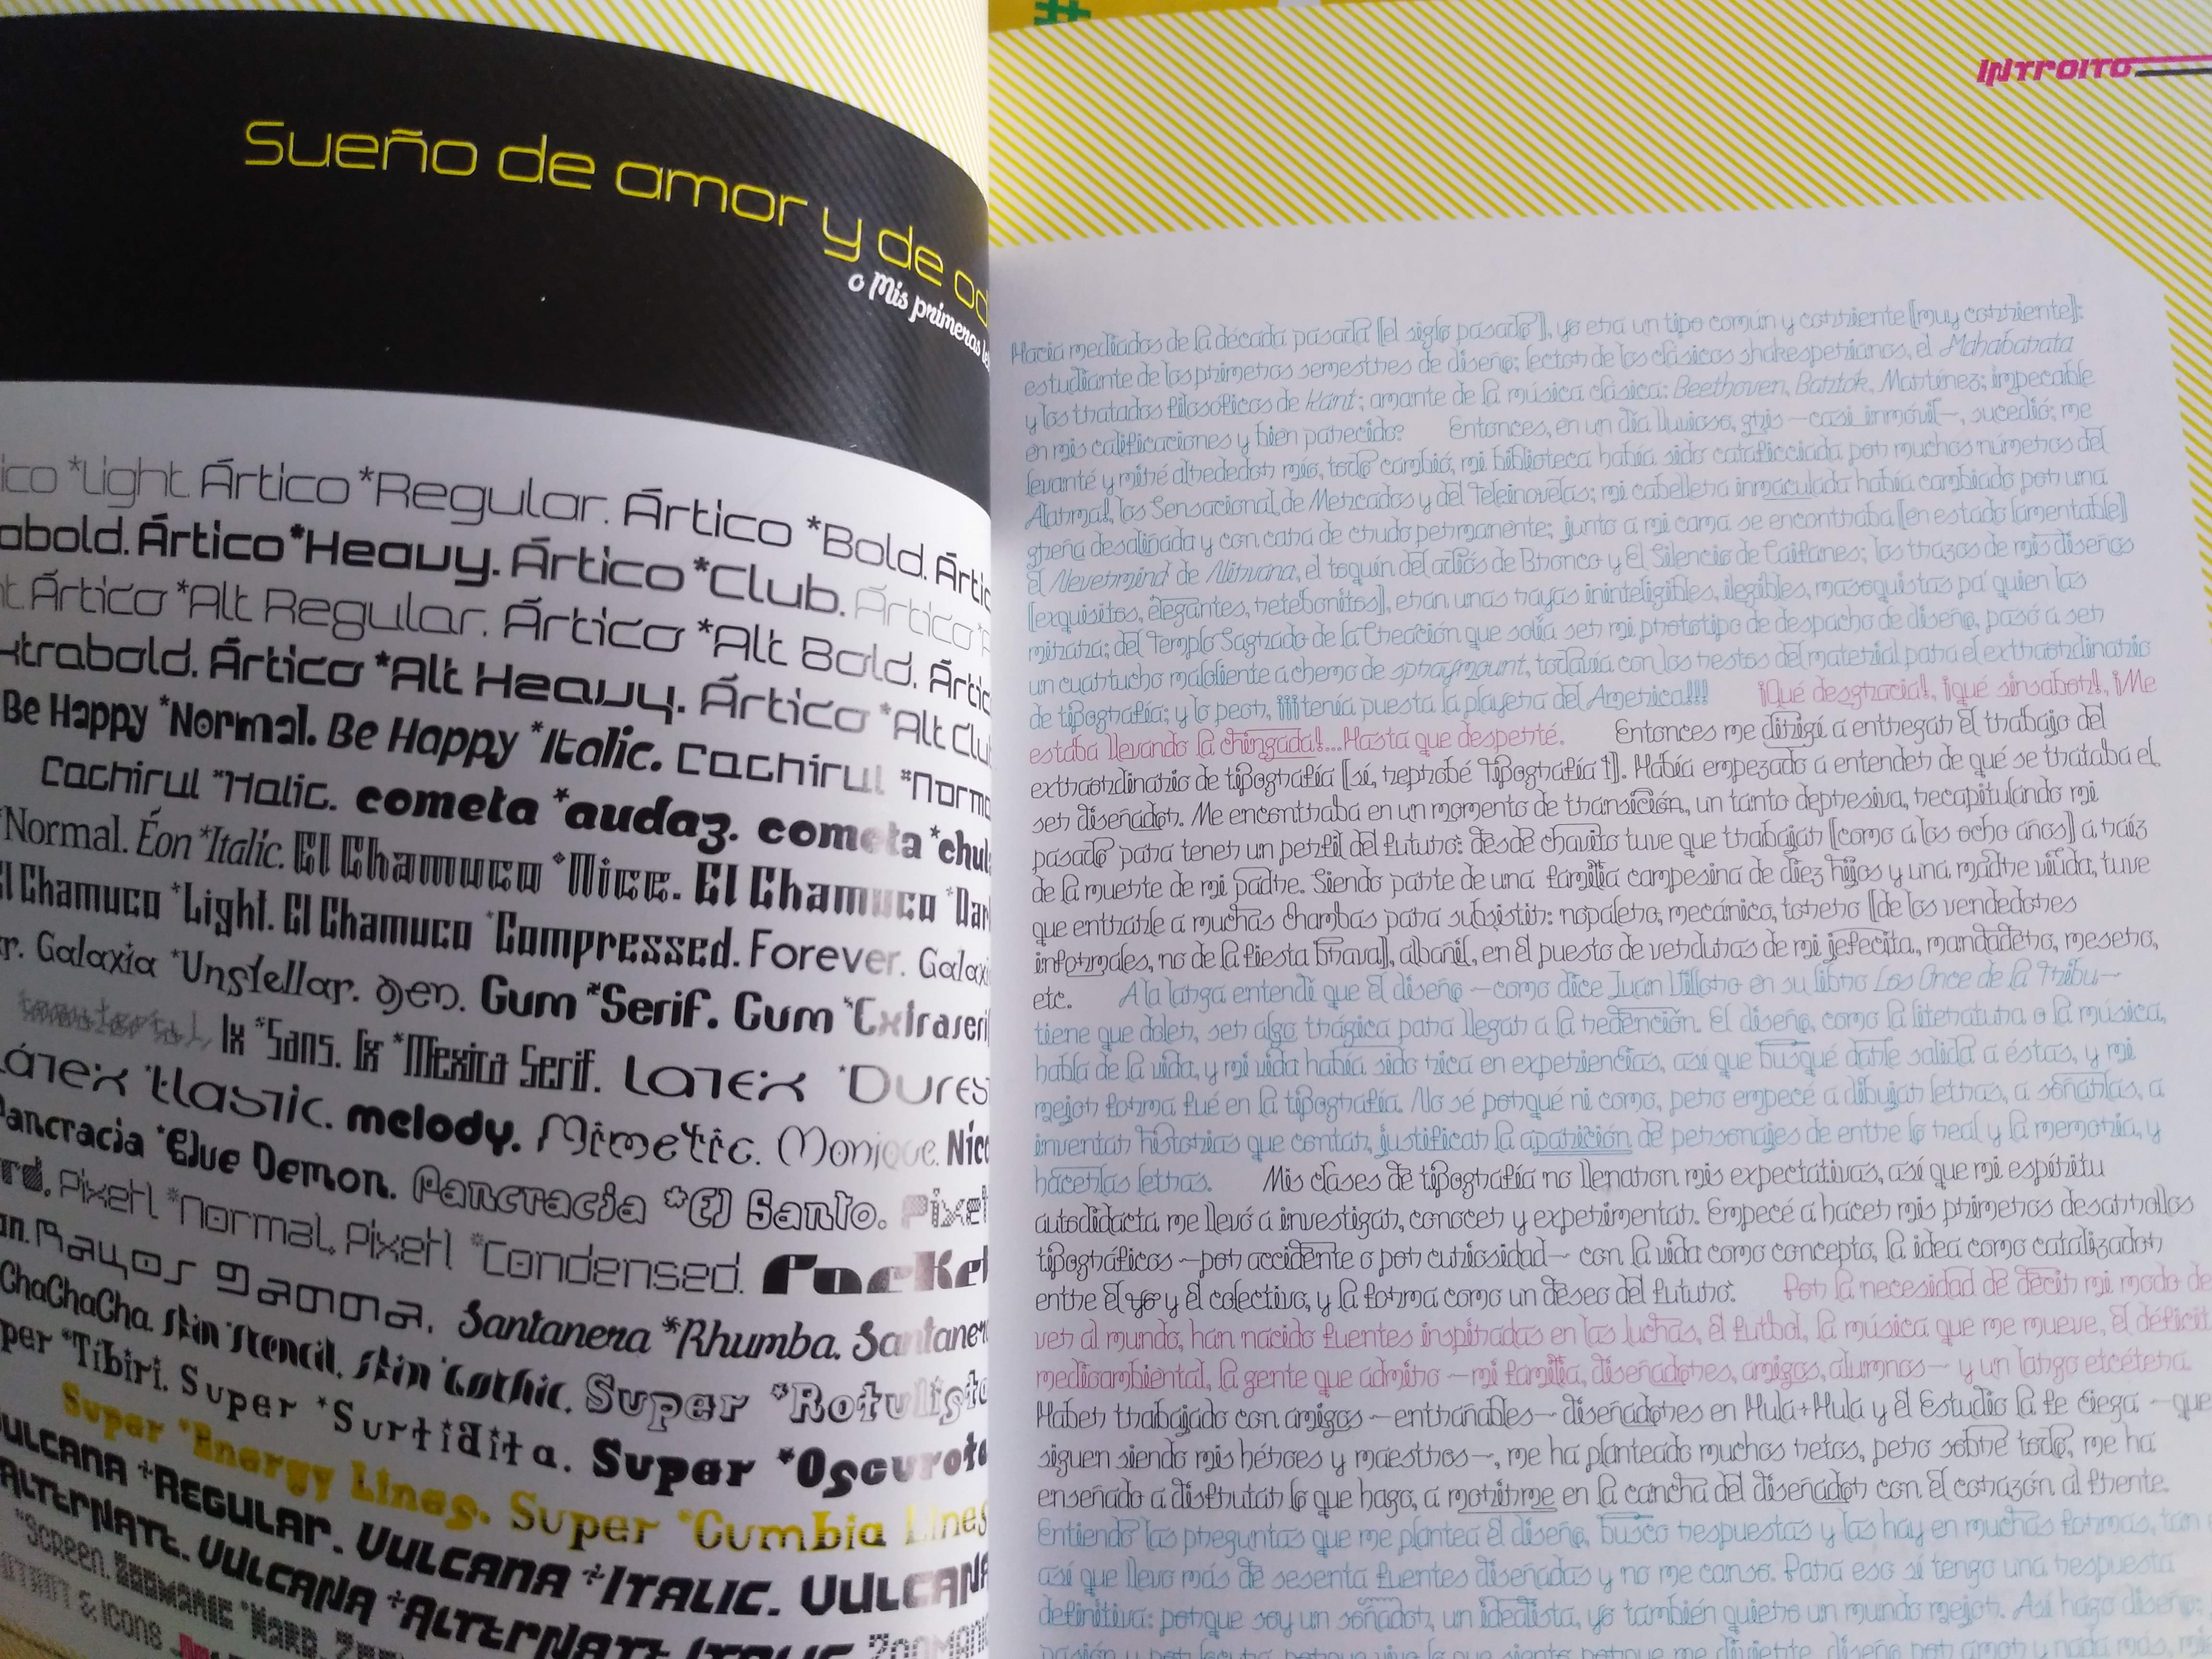 Sueño de amor y de
o Mis primeras
*Light Ártico *Regular. Ártico *Bold.
Ártico *Heavy. Ártico *Club. Ártico
Ártico *Alt Regular. Ártico *Alt Bold.
Ártico *Alt Heavy. Ártico *Alt
Be Happy *Normal. Be Happy *Italic. Cachirul
Cachirul *Italic. cometa *audaz. cometa
*Normal. Éon *Italic. El Chamuco *Nice. El Chamuco
El Chamuco *Light. El Chamuco *Compressed. Forever.
Galaxia *Unstellar. gen. Gum *Serif. Gum
Ix *Sans. Ix *Mexica Serif. Latex
Latex *Elastic. melody. Mimetic. Monique.
Pancracia *Blue Demon. Pancracia *El Santo.
Pixetl *Normal, Pixetl *Condensed.
Rayos gamma. Santanera *Rhumba.
ChaChaCha. Skin *Stencil, Skin *Gothic. Super
*Tibiri. Super *Surtidita. Super
Super *Energy Lines. Super *Cumbia Lines
VULCANA *REGULAR. VULCANA *ITALIC.
ALTERNATE. VULCANA *ALTERNATE ITALIC
*SCREEN. ZOOMANIE *HARD.
& ICONS
INTROITO
Hacia mediados de la década pasada [el siglo pasado], yo era un tipo común y corriente [muy corriente]:
estudiante de los primeros semestres de diseño; lector de los clásicos shakesperianos, el Mahabarata
y los tratados filosóficos de Kant; amante de la música clásica: Beethoven, Bartók, Martínez; impecable
en mis calificaciones y bien parecido. Entonces, en un día lluvioso, gris —casi inmóvil—, sucedió; me
levanté y miré alrededor mío, todo cambió, mi biblioteca había sido catafixiada por muchos números del
Alarma!, los Sensacional de Mercados y del Teleinovelas; mi cabellera inmaculada había cambiado por una
greña desaliñada y con cara de crudo permanente; junto a mi cama se encontraba [en estado lamentable]
el Nevermind de Nirvana, el toquín del adiós de Bronco y El Silencio de Caifanes; los trazos de mis diseños
[exquisitos, elegantes, retebonitos], eran unas rayas ininteligibles, ilegibles, masoquistas pa' quien las
mirara; del Templo Sagrado de la Creación que solía ser mi prototipo de despacho de diseño, pasó a ser
un cuartucho maloliente a chemo de spraymount, todavía con los restos del material para el extraordinario
de tipografía; y lo peor, ¡¡¡tenía puesta la playera del America!!! ¡Qué desgracia!, ¡qué sinsabor!, ¡Me
estaba llevando la chingada!...Hasta que desperté. Entonces me dirigí a entregar el trabajo del
extraordinario de tipografía [sí, reprobé Tipografía 1]. Había empezado a entender de qué se trataba el
ser diseñador. Me encontraba en un momento de transición, un tanto depresiva, recapitulando mi
pasado para tener un perfil del futuro: desde chavito tuve que trabajar [como a los ocho años] a raíz
de la muerte de mi padre. Siendo parte de una familia campesina de diez hijos y una madre viuda, tuve
que entrarle a muchas chambas para subsistir: nopalero, mecánico, torero [de los vendedores
informales, no de la fiesta brava], albañil, en el puesto de verduras de mi jefecita, mandadero, mesero,
etc. A la larga entendí que el diseño —como dice Juan Villoro en su libro Los Once de la Tribu—
tiene que doler, ser algo trágica para llegar a la redención. El diseño, como la literatura o la música,
habla de la vida, y mi vida había sido rica en experiencias, así que busqué darle salida a éstas, y mi
mejor forma fué en la tipografía. No sé porqué ni como, pero empecé a dibujar letras, a soñarlas, a
inventar historias que contar, justificar la aparición de personajes de entre lo real y la memoria, y
hacerlas letras. Mis clases de tipografía no llenaron mis expectativas, así que mi espíritu
autodidacta me llevó a investigar, conocer y experimentar. Empecé a hacer mis primeros desarrollos
tipográficos —por accidente o por curiosidad— con la vida como concepto, la idea como catalizador
entre el yo y el colectivo, y la forma como un deseo del futuro. Por la necesidad de decir mi modo de
ver al mundo, han nacido fuentes inspiradas en las luchas, el futbol, la música que me mueve, el déficit
medioambiental, la gente que admiro —mi familia, diseñadores, amigos, alumnos— y un largo etcétera.
Haber trabajado con amigos —entrañables— diseñadores en Hula+Hula y el Estudio la fe ciega —que
siguen siendo mis héroes y maestros—, me ha planteado muchos retos, pero sobre todo, me ha
enseñado a disfrutar lo que hago, a morirme en la cancha del diseñador con el corazón al frente.
Entiendo las preguntas que me plantea el diseño, busco respuestas y las hay en muchas formas, tan
así que llevo más de sesenta fuentes diseñadas y no me canso. Para eso sí tengo una respuesta
definitiva: porque soy un soñador, un idealista, yo también quiero un mundo mejor. Así hago diseño:
pasión y por locura, porque vivo lo que siento, porque me divierte, diseño por amor y nada más,